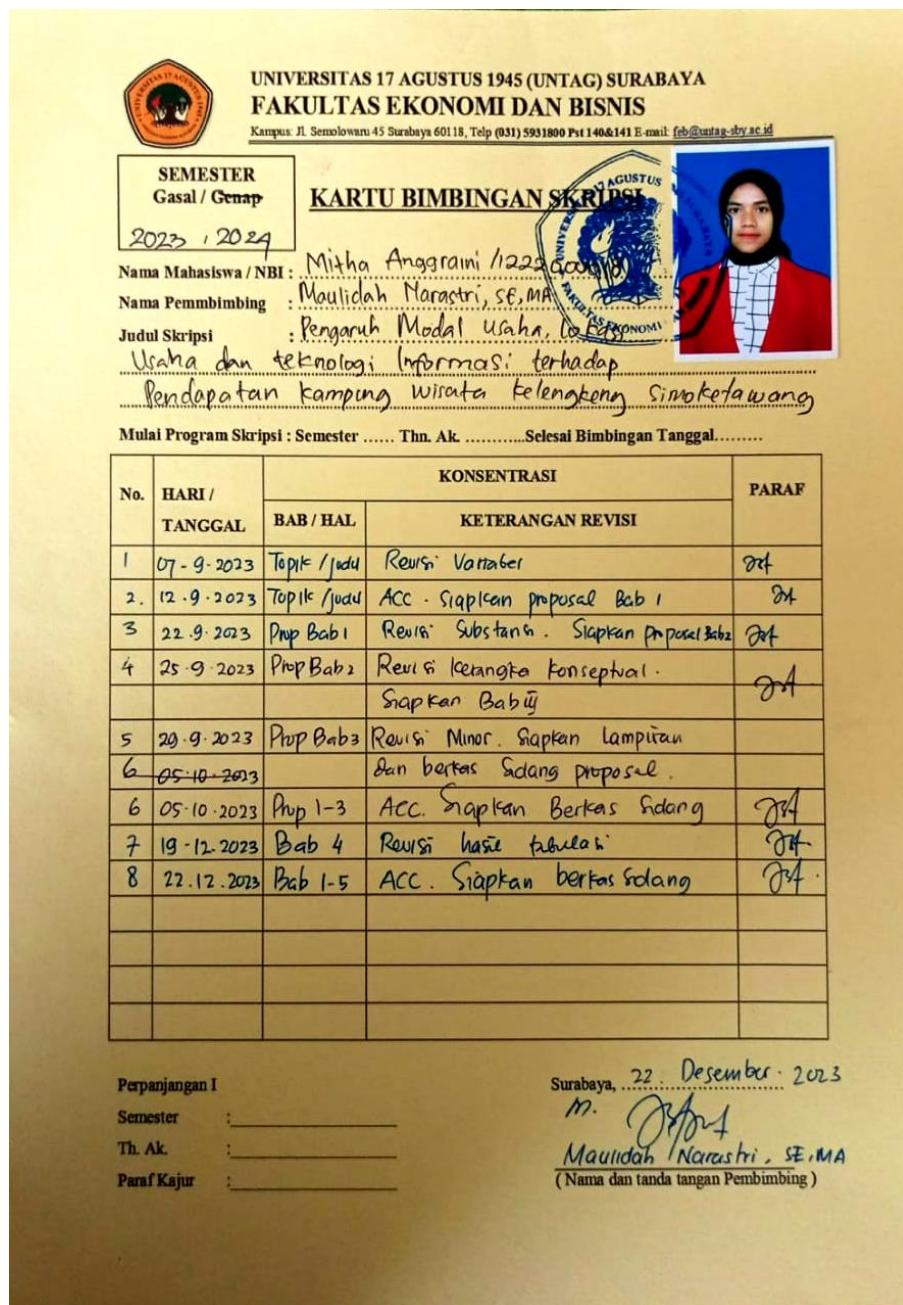 UNIVERSITAS 17 AGUSTUS 1945 (UNTAG) SURABAYA
FAKULTAS EKONOMI DAN BISNIS
Kampus: Jl. Semolowaru 45 Surabaya 60118, Telp (031) 5931800 Pst 140&141 E-mail: feb@untag-sby.ac.id
SEMESTER
Gasal / Genap
2023 / 2024
KARTU BIMBINGAN SKRIPSI
Nama Mahasiswa / NBI : Mitha Anggraini /
Nama Pemmbimbing : Maulidah Narastri, SE, MA
Judul Skripsi : Pengaruh Modal Usaha, Lokasi
Usaha dan teknologi Informasi terhadap
Pendapatan kampung wisata kelengkeng Simoketawang
Mulai Program Skripsi : Semester ...... Thn. Ak. ............Selesai Bimbingan Tanggal.........
No. HARI / TANGGAL KONSENTRASI PARAF
BAB / HAL KETERANGAN REVISI
1 07-9-2023 Topik / judul Revisi Variabel
2. 12.9.2023 Topik / judul ACC. Siapkan proposal Bab 1
3 22.9.2023 Prop Bab 1 Revisi Substansi. Siapkan proposal Bab 2
4 25-9-2023 Prop Bab 2 Revisi kerangka konseptual.
Siapkan Bab iii
5 29.9.2023 Prop Bab 3 Revisi Minor. Siapkan Lampiran
6 05-10-2023 dan berkas Sidang proposal.
6 05-10-2023 Prop 1-3 ACC. Siapkan Berkas Sidang
7 19-12.2023 Bab 4 Revisi hasil tabulasi
8 22.12.2023 Bab 1-5 ACC. Siapkan berkas Sidang
Perpanjangan I
Semester :
Th. Ak. :
Paraf Kajur :
Surabaya, 22 Desember 2023
Maulidah Narastri, SE, MA
( Nama dan tanda tangan Pembimbing )